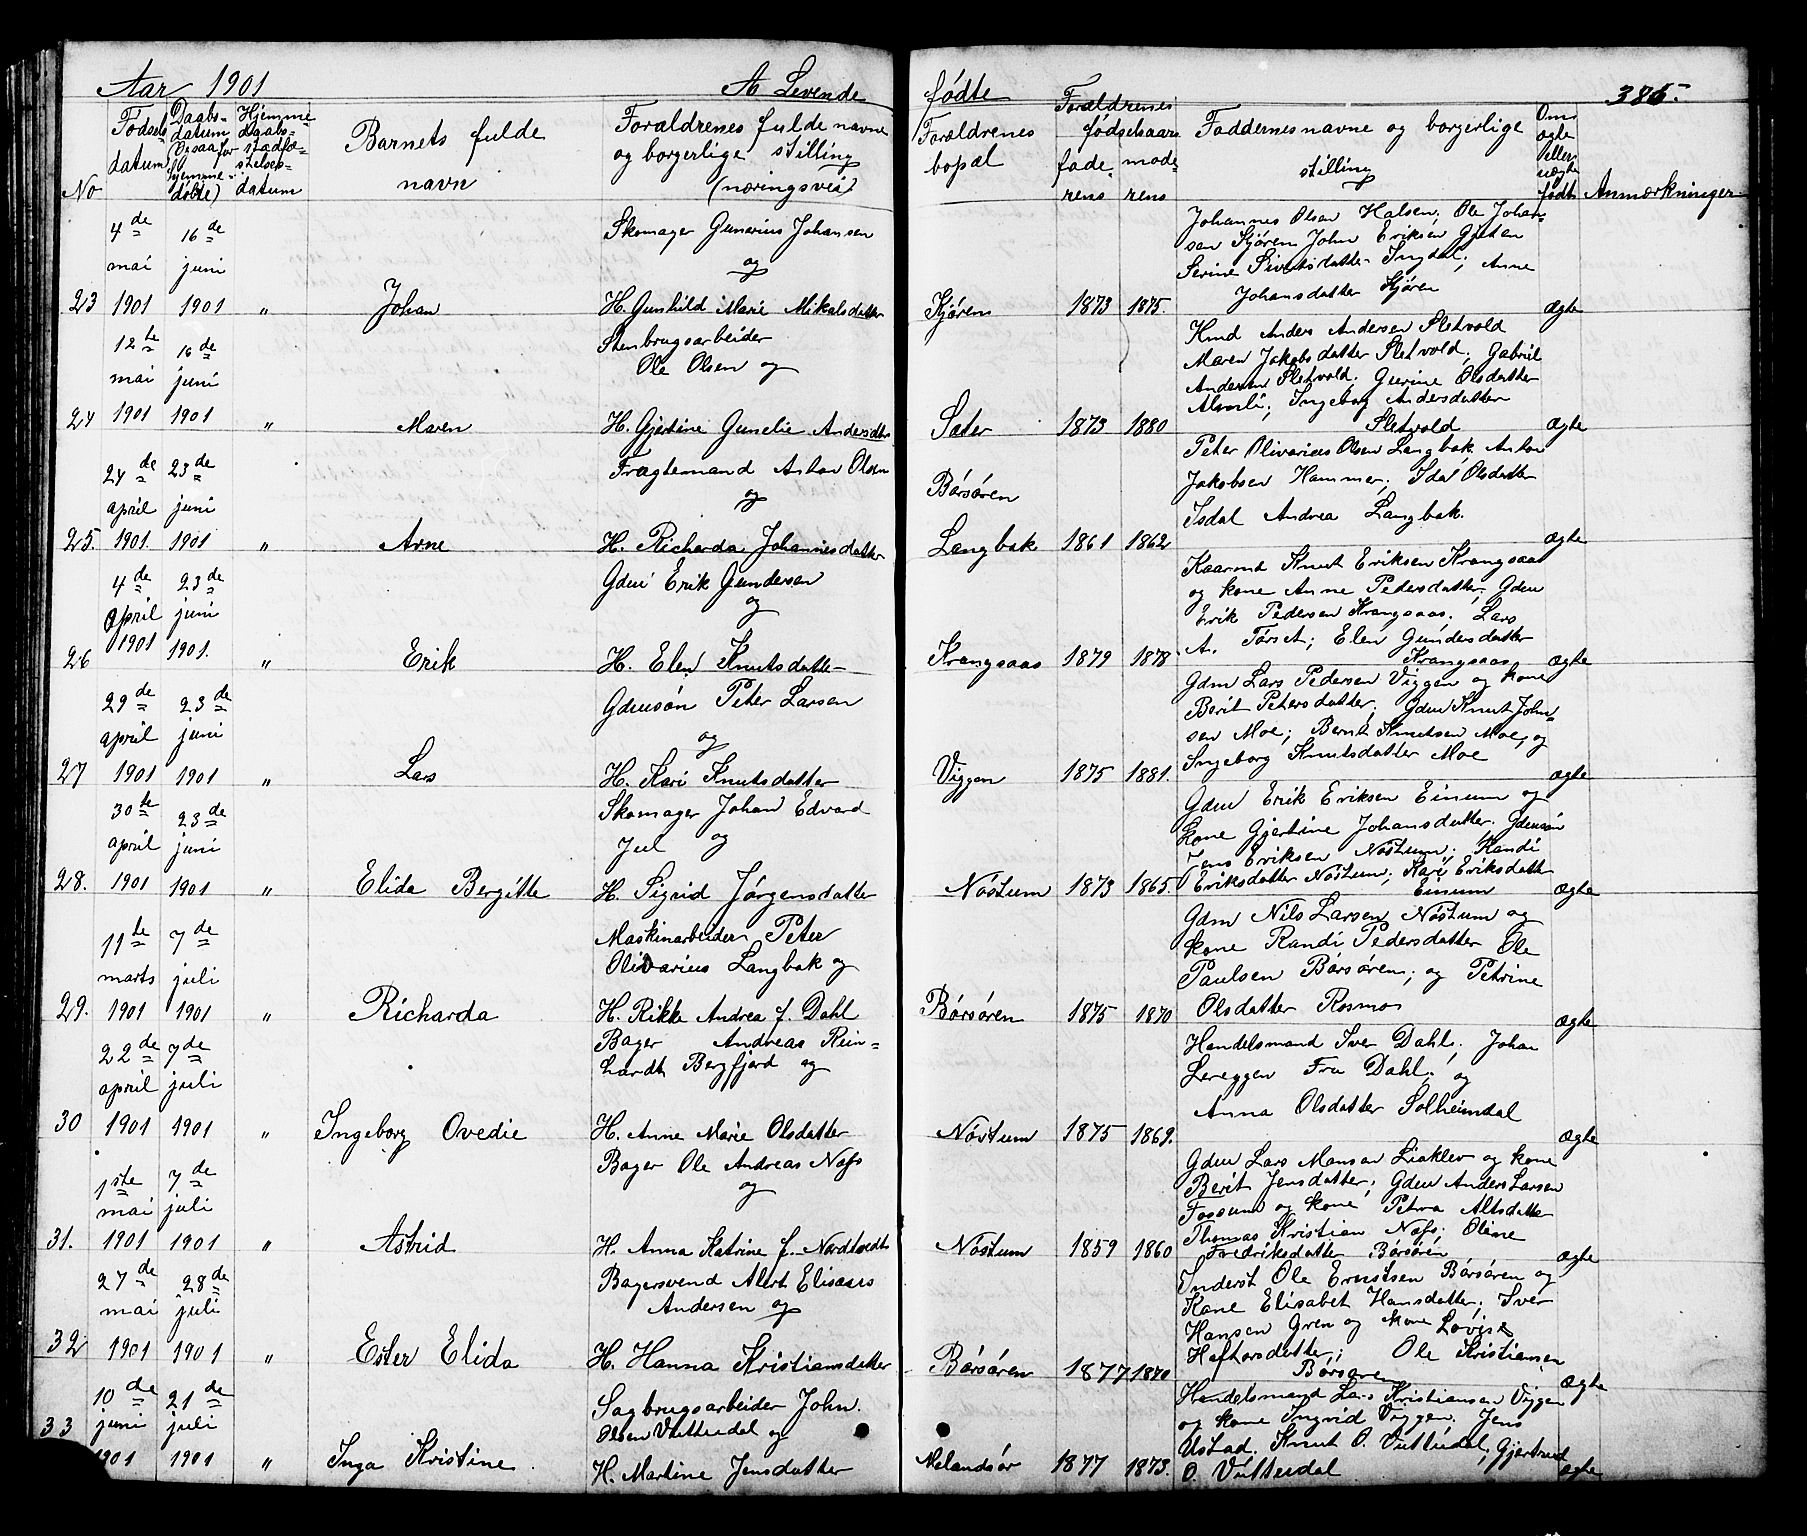 Aar 1901 A Levende fødte 386.
No
Fødsels datum
Daabs-datum (Ogsaa for hjemme-døbte)
Hjemme-daabs-stadfæ-stelses-datum
Barnets fulde navn
Forældrenes fulde navne og borgerlige stilling (næringsvei)
Forældrenes bopæl
Forældrenes fødselsaar
faderens
moderens
Faddernes navne og borgerlige stilling
Om ægte eller uægte født
Anmærkninger
23
4de mai 1901
16de juni 1901
"
Johan
Skomager Gunerius Johansen
og
H. Gunhild Marie Mikalsdatter
Kjøren
1873
1875.
Johannes Olsen Halsen; Ole Johan-
sen Kjøren John Eriksen Gjeten
Serine Sivertsdatter Ingdal; Anne
Johansdatter Kjøren
Ægte
24
12te mai 1901
16de juni 1901
"
Maren
Stenbrugsarbeider
Ole Olsen og
H. Gjertine Gunelie Andersdtr
Sæter
1873
1880
Kmd Anders Andersen Sletvold
Maren Jakobsdatter Sletvold; Gabriel
Andersen Sletvold. Gurine Olsdatter
Alvsli; Ingeborg Andersdatter
Sletvold
Ægte
25.
24de april 1901.
23de juni 1901
"
Arne
Fragtemand Anton Olsen
og
H. Richarda Johannesdatter
Børsøren
Langbak
1861
1862
Peter Olivarius Olsen Langbak Anton
Jakobsen Hammer; Ida Olsdatter
Isdal Andrea Langbak.
Ægte
26
4de april 1901
23de juni 1901.
"
Erik
Gdm Erik Gundersen
og
H. Elen Knutsdatter
Krangsaas
1879
1878
Kaarmd Knut Eriksen Krangsaas
og kone Anne Pedersdatter; Gdm
Erik Pedersen Krangsaas; Lars
A. Tørset; Elen Gundersdatter
Krangsaas
Ægte
27
29de april 1901
23de juni 1901
"
Lars
Gdmsøn Peter Larsen
og
H. Kari Knutsdatter
Viggen
1875
1881.
Gdm Lars Pedersen Viggen og kone
Berit Petersdatter; Gdm Knut John-
sen Moe; Bernt Knutsen Moe, og
Ingeborg Knutsdatter Moe
Ægte
28.
30te april 1901
23de juni 1901
"
Elida Bergitte
Skomager Johan Edvard
Jul og
H. Sigrid Jørgensdatter
Nøstum
1873
1865.
Gdm Erik Eriksen Einum og
kone Gjertine Johansdatter. Gdmsøn
Jens Eriksen Nøstum; Randi
Eriksdatter Nøstum; Kari Eriksdatter
Einum
Ægte
29.
11te marts 1901
7de juli 1901
"
Richarda
Maskinarbeider Peter
Olivarius Langbak og
H. Rikke Andrea f. Dahl
Børsøren
1875
1870
Gdm Nils Larsen Nøstum og
kone Randi Pedersdatter Ole
Paulsen Børsøren; og Petrine
Olsdatter Rosmo
Ægte
30
22de april 1901
7de juli 1901
"
Ingeborg Ovedie
Bager Andreas Rein-
hardt Bergfjord og
H. Anne Marie Olsdatter
Nøstum
1875
1869.
Handelsmand Iver Dahl; Johan
Lereggen Fru Dahl; og
Anna Olsdatter Solheimdal
Ægte
31.
1ste mai 1901
7de juli 1901
"
Astrid
Bager Ole Andreas Næss
og
H. Anna Katrine f. Nordtvedt
Nøstum
1859
1860
Gdm Lars Monsen Liaklev og kone
Berit Jensdatter; Gdm Anders Larsen
Fossum og kone Petra Altsdatter
Thomas Kristian Næss; Oline
Fredriksdatter Børsøren
Ægte
32
27de mai 1901
28de juli 1901
"
Ester Elida
Bagersvend Alert Elisæus
Andersen og
H. Hanna Kristiansdatter
Børsøren
1877
1870
Inderst Ole Ernstsen Børsøren og
Kone Elisabet Hansdatter; Iver
Hansen Gren og kone Lovise
Heftorsdatter; Ole Kristiansen
Børsøren
Ægte
33
10de juni 1901
21de juli 1901
"
Inga Kristine
Sagbrugsarbeider John
Olsen Vuttudal og
H. Martine Jensdatter
Melandsør
1877
1873.
Handelsmand Lars Kristiansen Viggen
og kone Ingrid Viggen. Jens
Ustad. Knut O. Vuttudal; Gjertrud
O. Vuttudal
Ægte